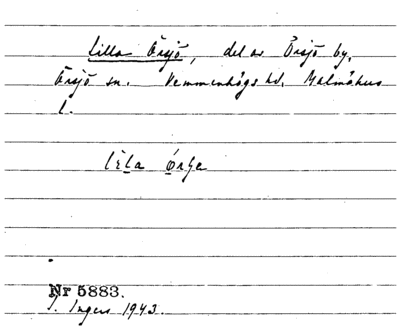 Lilla Örsjö, del av Örsjö by,
Örsjö sn. Vemmenhögs hd. Malmöhus
l.
Nr 5883.
I. Ingers 1943.